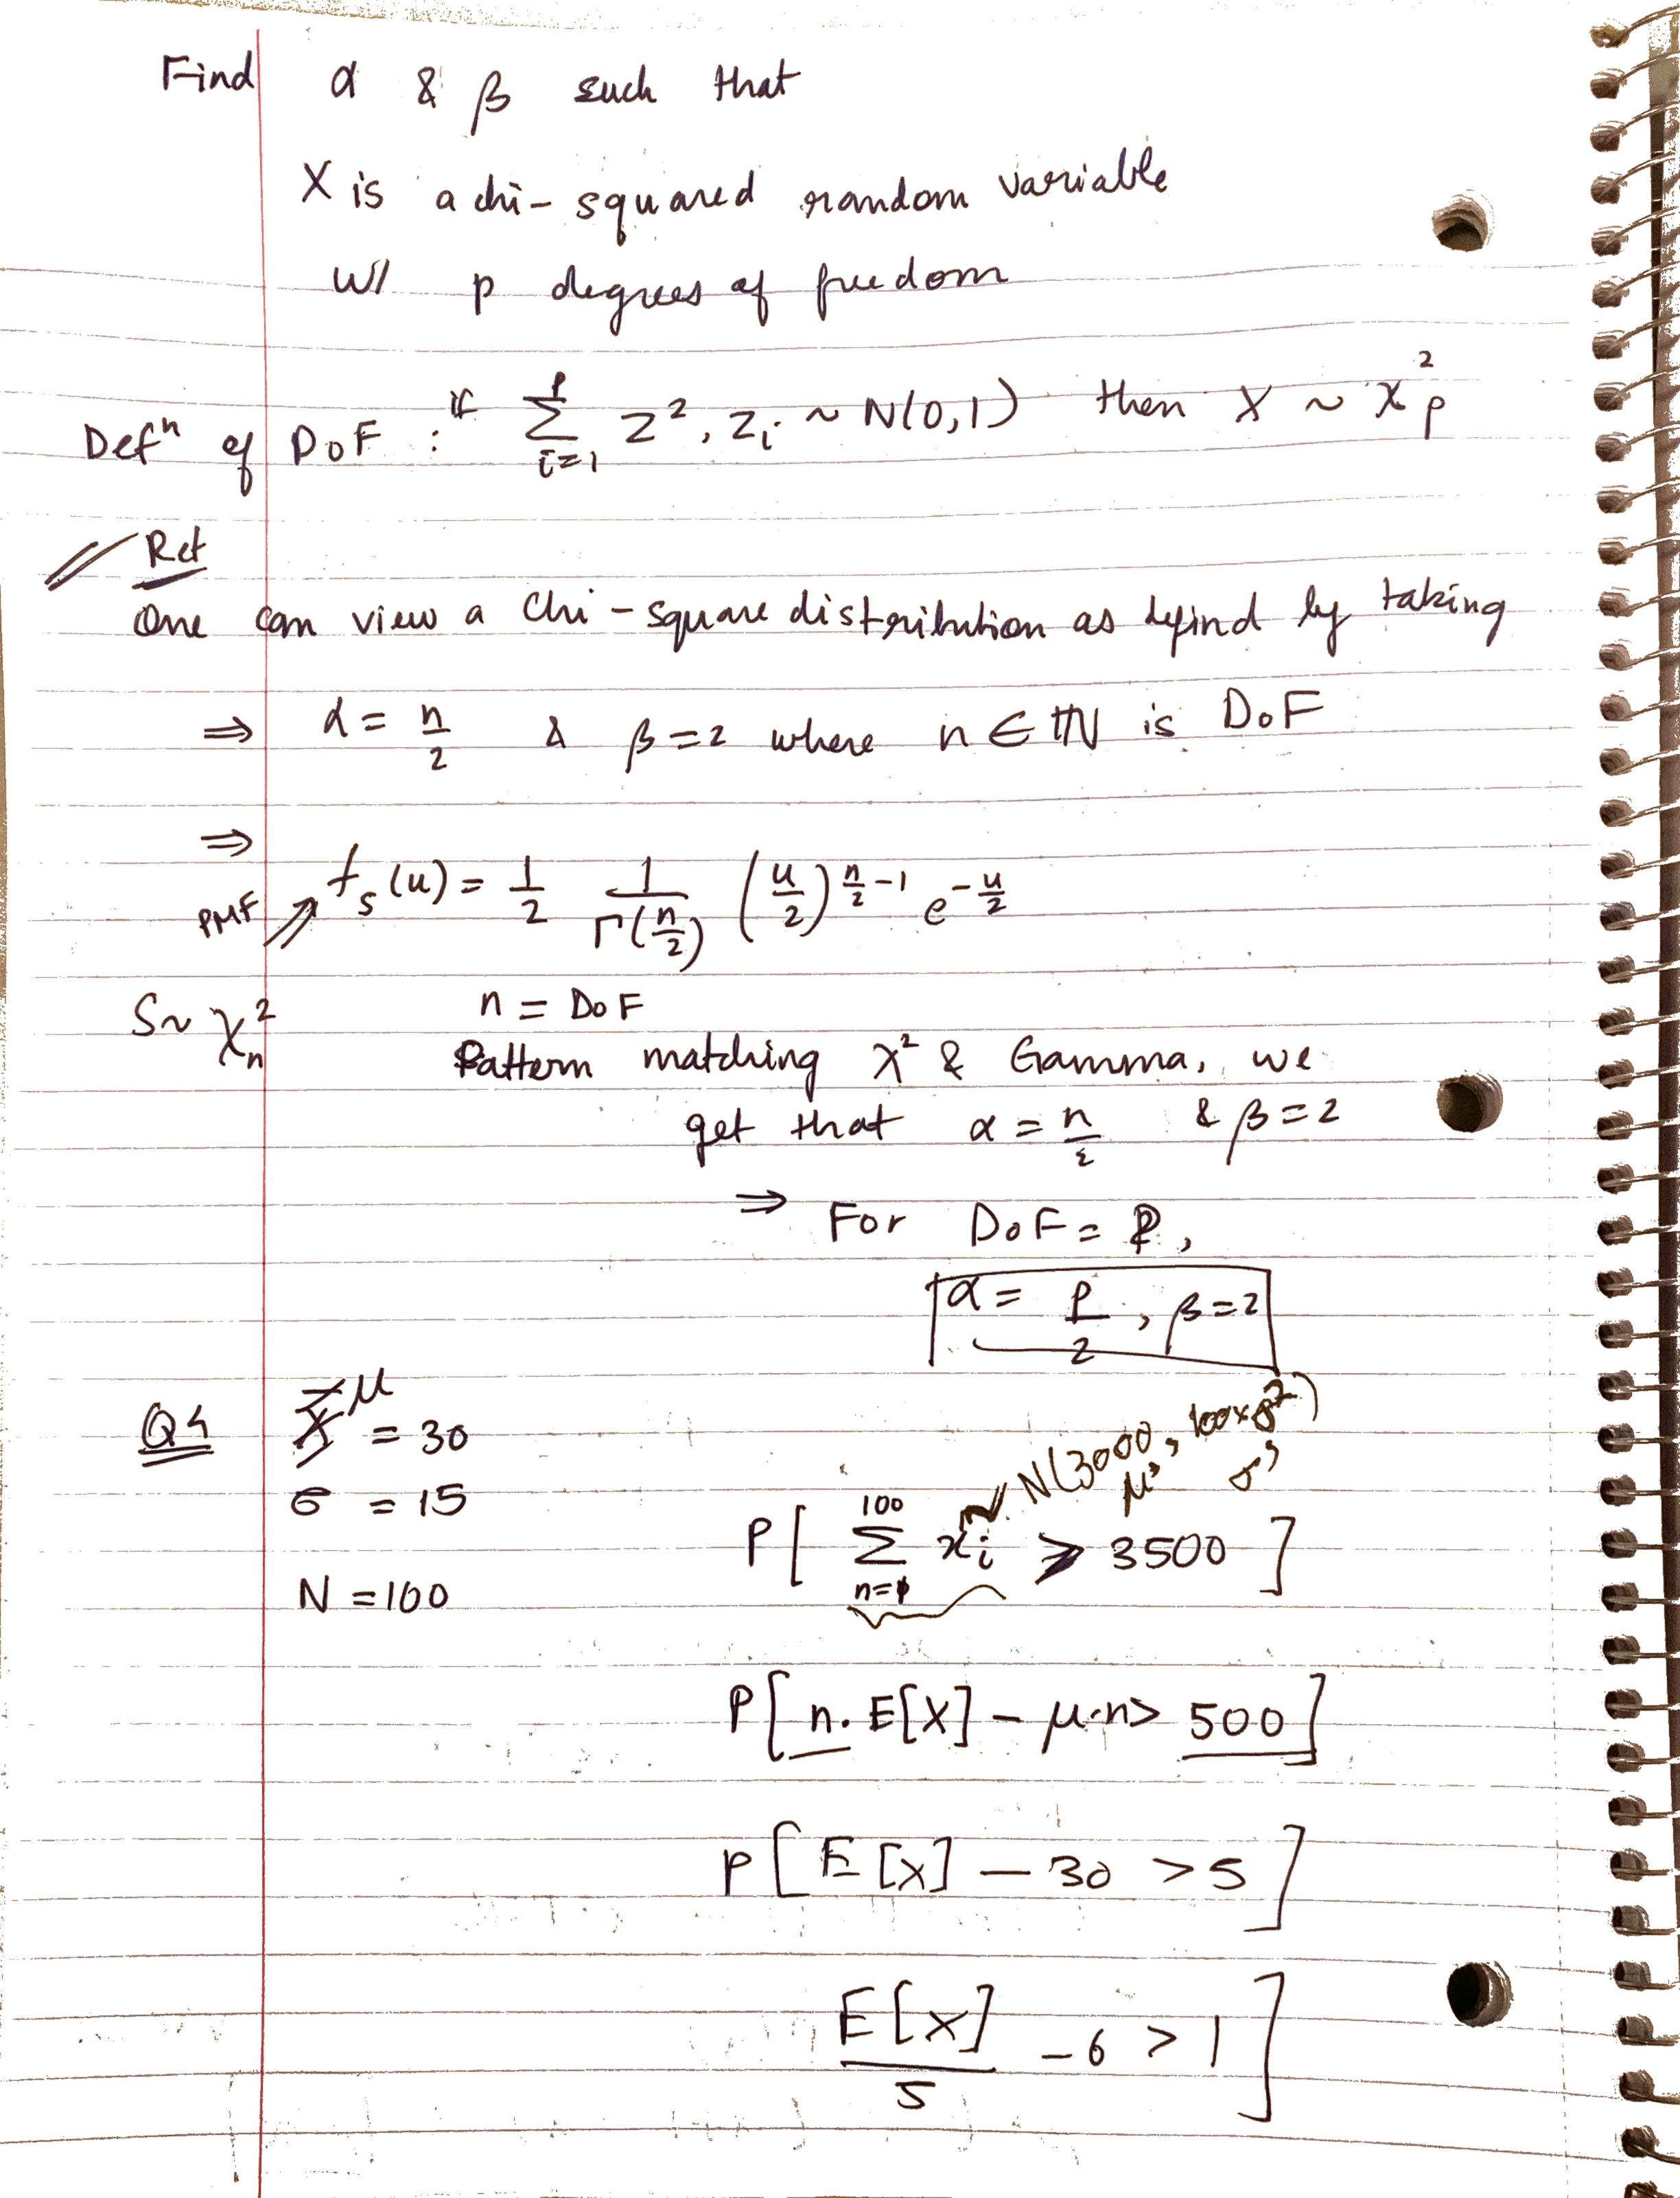 Find α & β such that
X is a chi-squared random variable
w/ p degrees of freedom
Defⁿ of DoF : if ∑_{i=1}^{p} Z², Z_i ~ N(0,1) then X ~ χ²_p
Ret
One can view a Chi-square distribution as defind by taking
⇒ α = n/2 & β = 2 where n ∈ ℕ is DoF
⇒
PMF f_s(u) = 1/2 1/Γ(n/2) (u/2)^{n/2 - 1} e^{-u/2}
S ~ χ²_n
n = DoF
Pattern matching χ² & Gamma, we
get that α = n/2 & β = 2
⇒ For DoF = P,
α = p/2, β = 2
Q4 μ = 30
σ = 15
N = 100
~ N(3000, 100×σ²)
μ' σ'
P[ ∑_{n=1}^{100} x_i > 3500 ]
P[ n. E[X] - μ·n > 500 ]
P[ E[X] - 30 > 5 ]
E[X]/5 - 6 > 1 ]